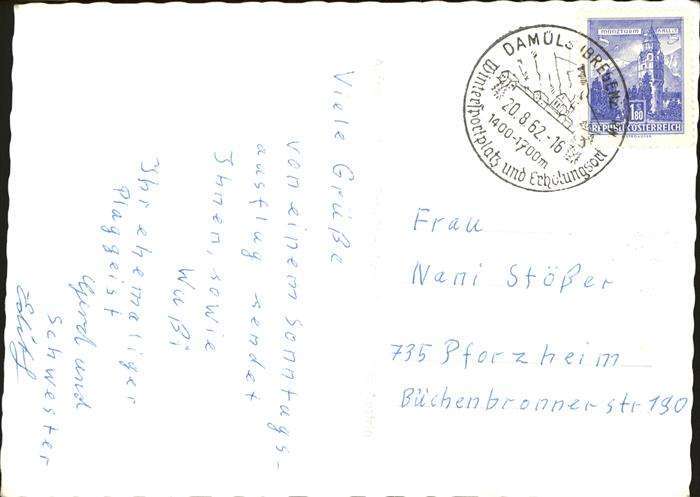 Viele Grüße
von einem Sonntags-
ausflug sendet
Ihnen, sowie
Wußi
Ihr ehemaliger
Plaggeist
Gerd und
Schwester
DAMÜLS (BREGENZ
20.8.62-16
1400-1700m
Wintersportplatz und Erholungsort
MÜNZTURM HALL I.T.
S 1.80
REPUBLIK ÖSTERREICH
Frau
Nani Stößer
735 Pforzheim
Büchenbronnerstr 190